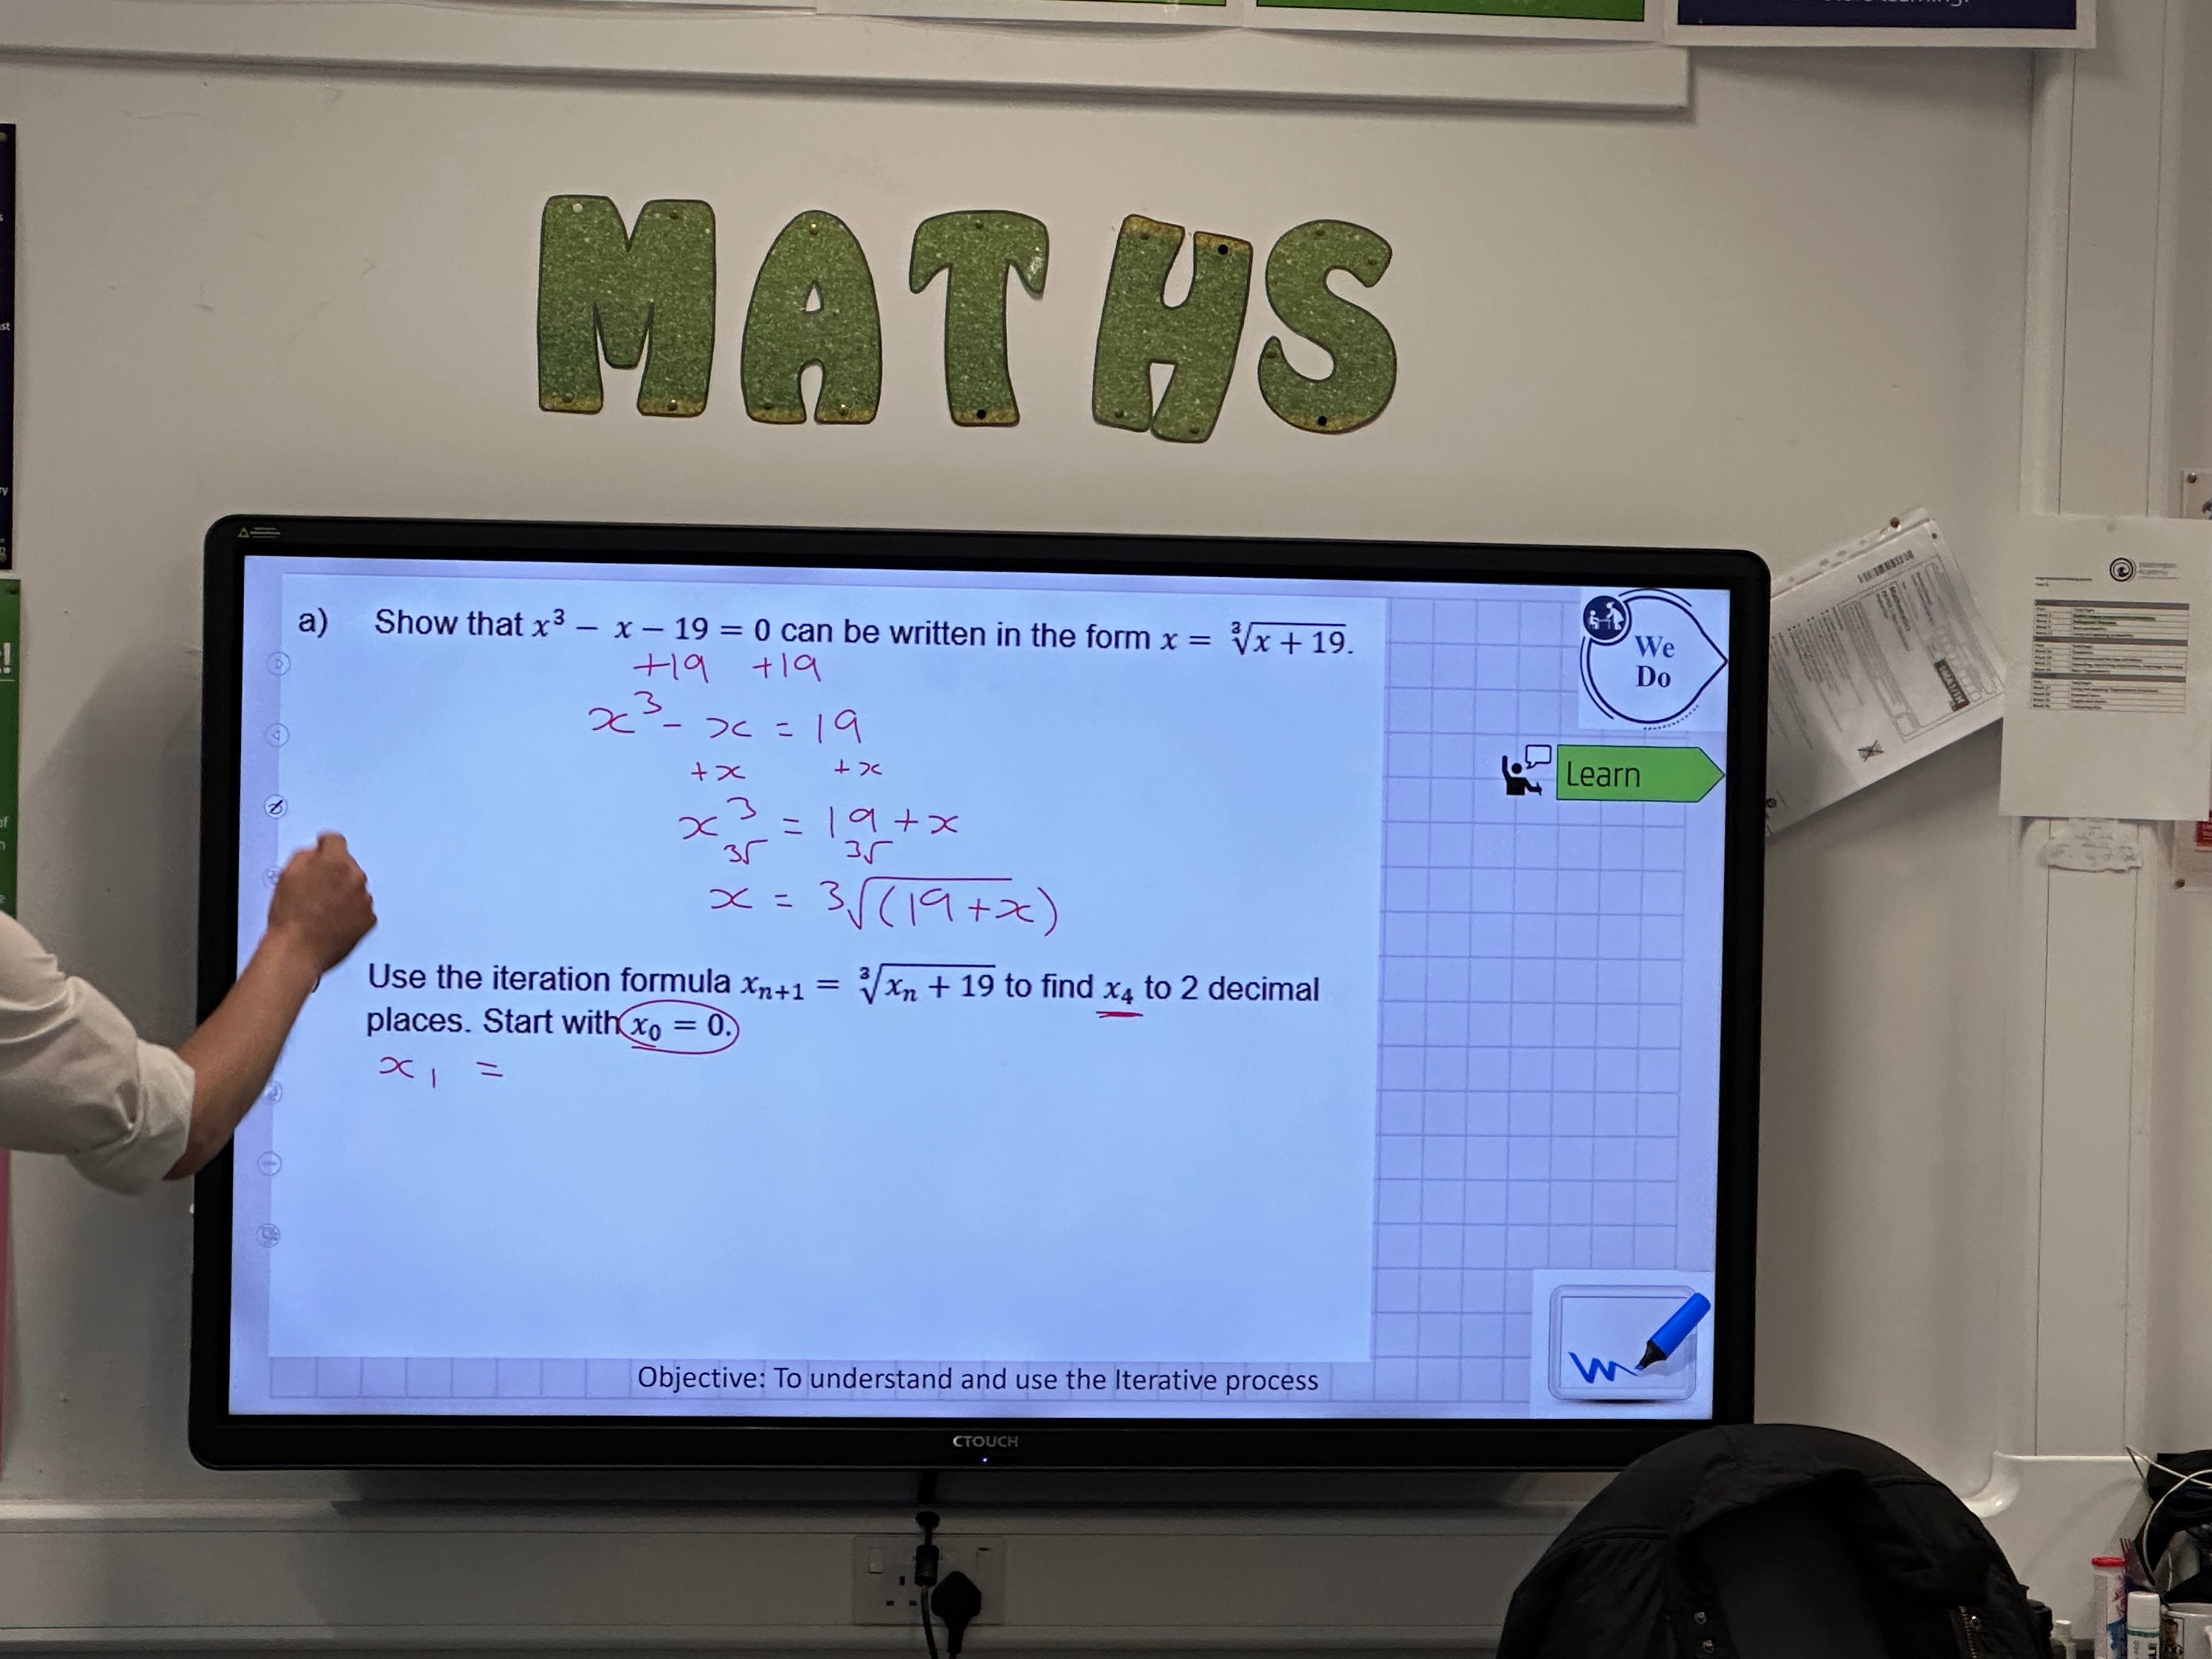 MATHS
a) Show that x³ − x − 19 = 0 can be written in the form x = ∛(x + 19).
+19 +19
x³ - x = 19
+x +x
x³ = 19 + x
3√ 3√
x = 3√(19+x)
Use the iteration formula xₙ₊₁ = ∛(xₙ + 19) to find x₄ to 2 decimal
places. Start with x₀ = 0.
x₁ =
We
Do
Learn
Objective: To understand and use the Iterative process
CTOUCH